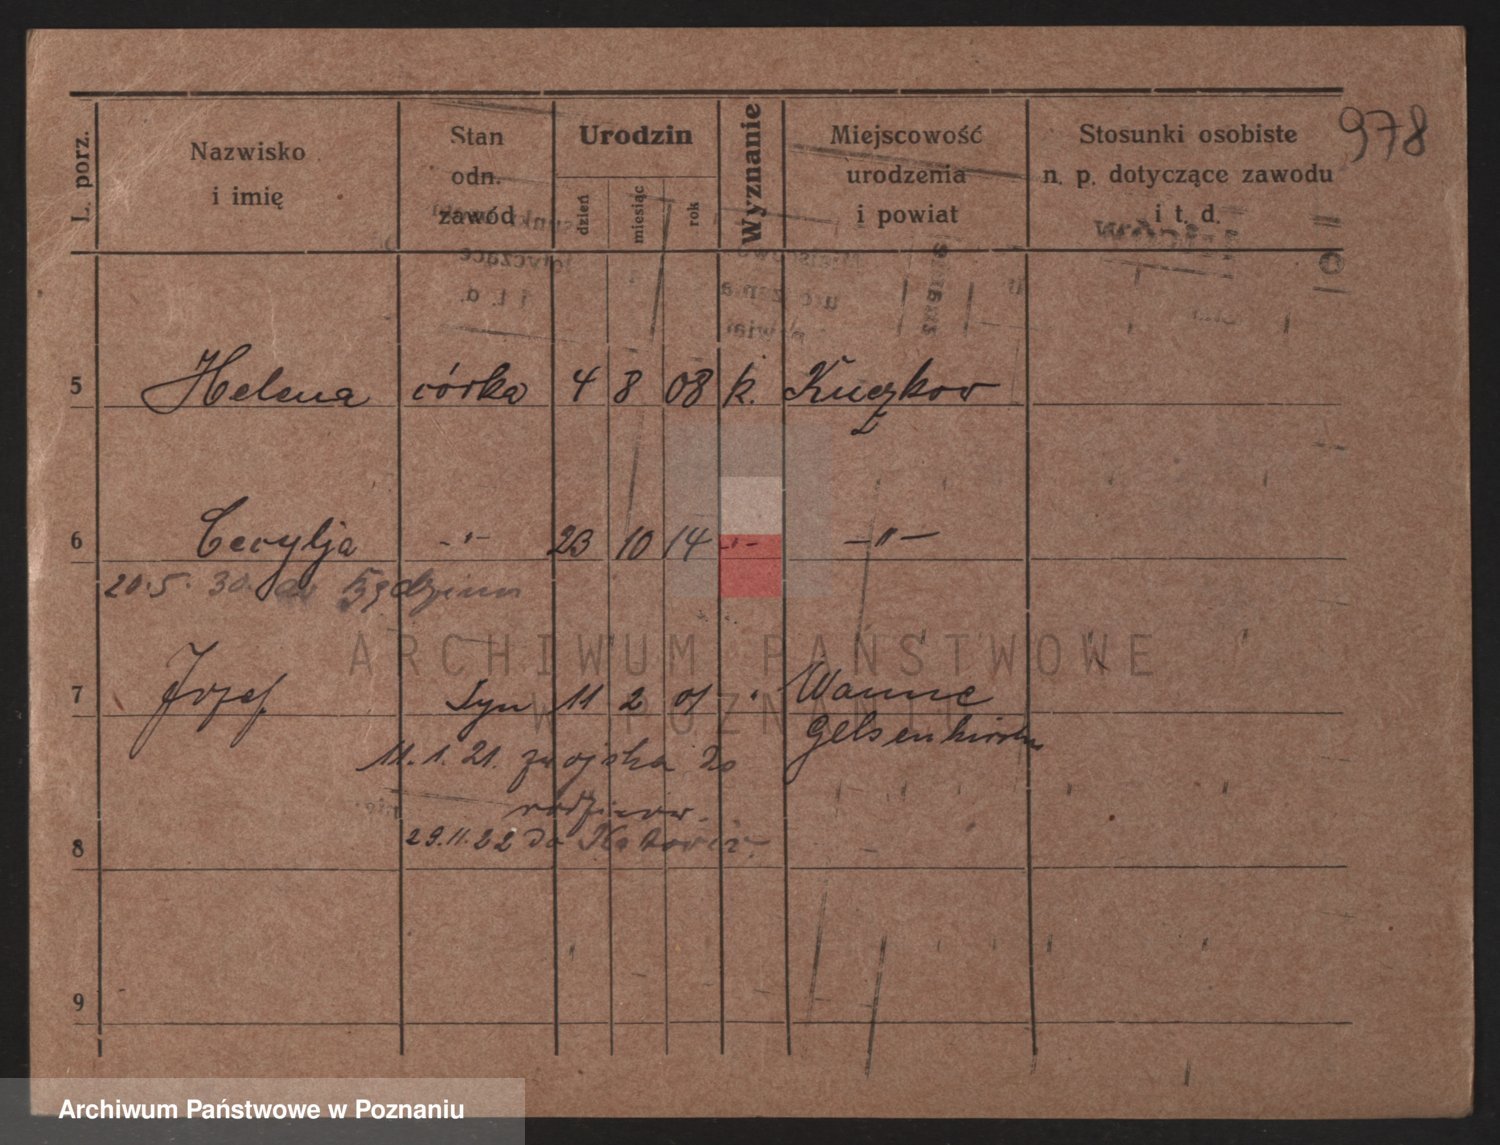 978
L. porz.
Nazwisko
i imię
Stan
odn.
zawód
Urodzin
dzień
miesiąc
rok
Wyznanie
Miejscowość
urodzenia
i powiat
Stosunki osobiste
n. p. dotyczące zawodu
i t. d.
5 Helena córka 4 8 08 k. Kuczkow
6 Cecylja -"- 23 10 14 -"- -"-
20.5.30. do
7 Józef syn 11 2 01 " Wanne
Gelsenkirchen
11.1.21. z wojska do
rodziców.
29.11.22 do Katowic.
8
9
ARCHIWUM PAŃSTWOWE
W POZNANIU
Archiwum Państwowe w Poznaniu